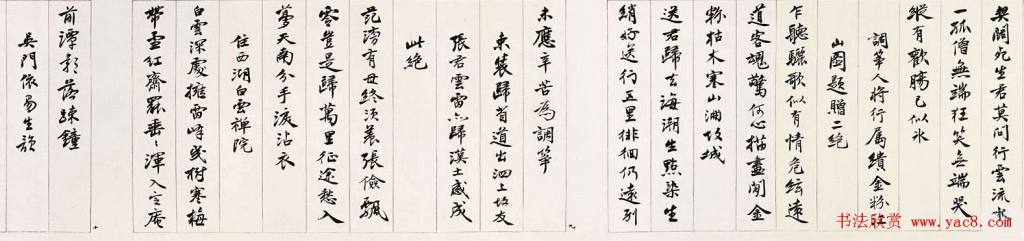 契闊死生君莫問行雲流水
一孤僧無端狂笑無端哭
縱有歡腸已似冰
調箏人將行属繢金粉江
山圖題贈二絕
乍聽驪歌似有情危絃遠
道客魂驚何心描畫閒金
粉枯木寒山滿故城
送君歸去海潮生點染生
綃好送行五里徘徊仍遠別
九
未應辛苦為調箏
束裝歸省道出泗上故友
張君雲雷亦歸漢土感成
此絕
范滂有母終須養張儉飄
零豈是歸萬里征途愁入
夢天南分手淚沾衣
住西湖白雲禪院
白雲深處擁雷峰幾樹寒梅
帶雪紅齋罷垂〻渾入定庵
十
前潭影落疎鐘
吳門依易生韻
书法欣赏
www.yac8.com